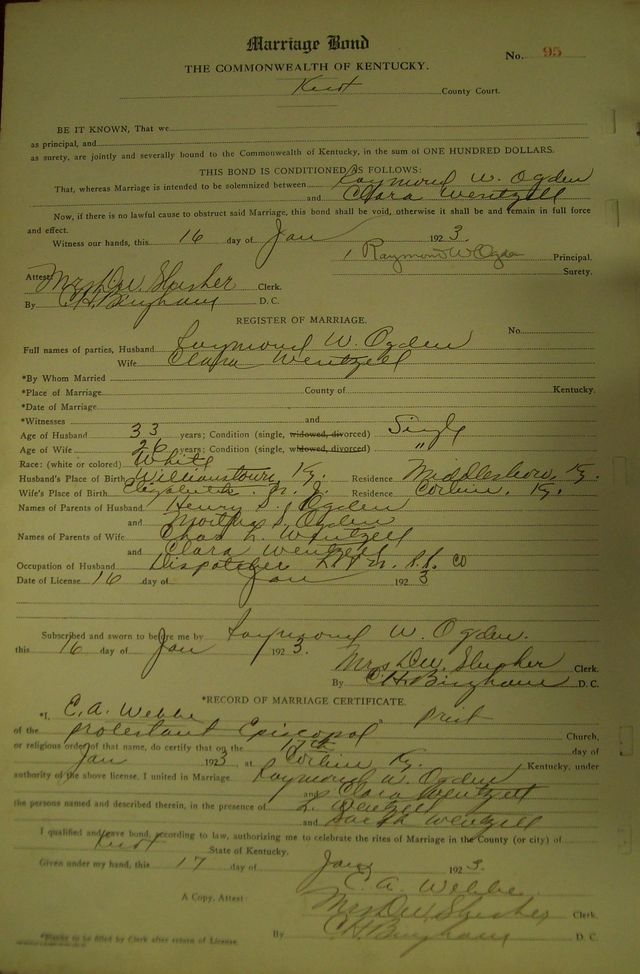 Marriage Bond
No. 95
THE COMMONWEALTH OF KENTUCKY.
Knox County Court.
BE IT KNOWN, That we
as principal, and
as surety, are jointly and severally bound to the Commonwealth of Kentucky, in the sum of ONE HUNDRED DOLLARS.
THIS BOND IS CONDITIONED AS FOLLOWS:
That, whereas Marriage is intended to be solemnized between Raymond W. Ogden
and Clara Wentzell
Now, if there is no lawful cause to obstruct said Marriage, this bond shall be void, otherwise it shall be and remain in full force
and effect.
Witness our hands, this 16 day of Jan 1923.
Raymond W. Ogden Principal.
Surety.
Attest: Mrs D.W. Slusher Clerk.
By C.H. Bingham D. C.
REGISTER OF MARRIAGE.
No.
Full names of parties, Husband Raymond W. Ogden
Wife Clara Wentzell
*By Whom Married
*Place of Marriage County of Kentucky.
*Date of Marriage
*Witnesses and
Age of Husband 33 years; Condition (single, widowed, divorced) Single
Age of Wife 26 years; Condition (single, widowed, divorced) "
Race: (white or colored) White
Husband's Place of Birth Williamstown, Ky. Residence Middlesboro, Ky.
Wife's Place of Birth Elizabeth, N. J. Residence Corbin, Ky.
Names of Parents of Husband Henry D. Ogden
and S, Ogden
Names of Parents of Wife Chas L. Wentzell
and Clara Wentzell
Occupation of Husband Dispatcher L & N. R.R. Co
Date of License 16 day of Jan 1923
Subscribed and sworn to before me by Raymond W. Ogden.
this 16 day of Jan 1923.
Mrs D.W. Slusher Clerk.
By C.H. Bingham D. C.
*RECORD OF MARRIAGE CERTIFICATE.
*I, E. A. Webbe a Priest
of the Protestant Episcopal Church,
or religious order of that name, do certify that on the 17th day of
Jan 1923 at Corbin Ky. Kentucky, under
authority of the above license, I united in Marriage Raymond W. Ogden
and Clara Wentzell
the persons named and described therein, in the presence of L. Wentzell
and Sarah Wentzell
I qualified and gave bond, according to law, authorizing me to celebrate the rites of Marriage in the County (or city) of
Knox State of Kentucky.
Given under my hand, this 17 day of Jany 1923.
E. A. Webbe
A Copy. Attest: Mrs D.W. Slusher Clerk.
By C.H. Bingham D. C.
*Blanks to be filled by Clerk after return of License.